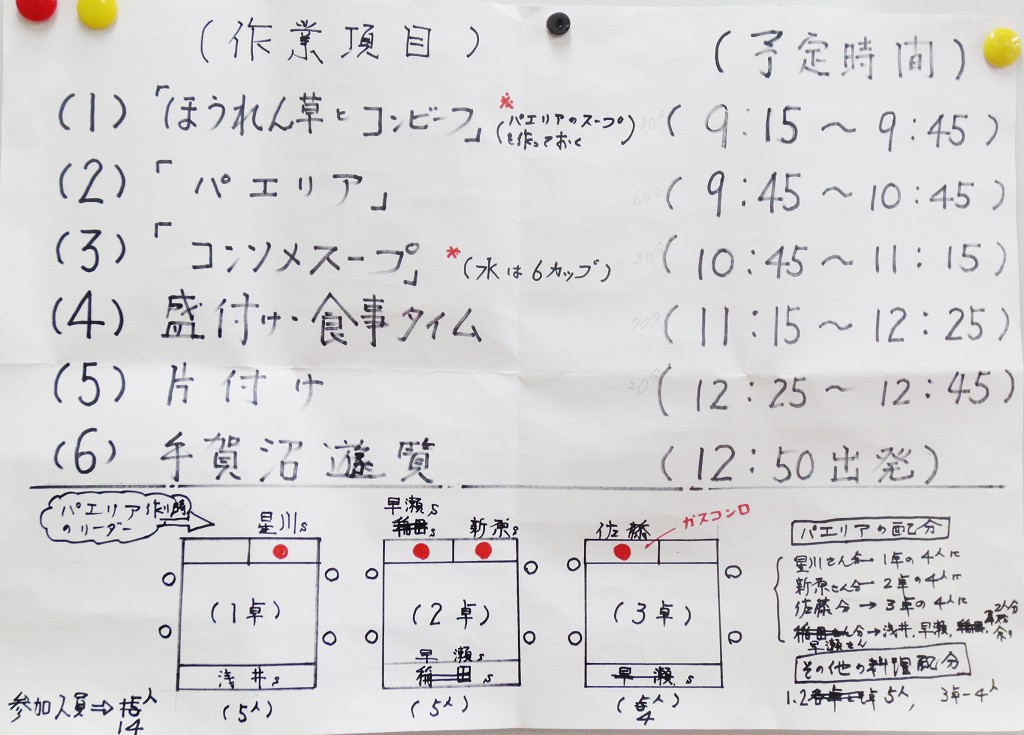 (作業項目)
(予定時間)
(1)「ほうれん草とコンビーフ」※(パエリアのスープを作っておく) 30分 (9:15～9:45)
(2)「パエリア」 60分 (9:45～10:45)
(3)「コンソメスープ」※(水は6カップ) 30分 (10:45～11:15)
(4) 盛付け・食事タイム 70分 (11:15～12:25)
(5) 片付け 20分 (12:25～12:45)
(6) 手賀沼遊覧 (12:50出発)
パエリア作り時
のリーダー
星川s
早瀬s
稲田s
新原s
佐藤
ガスコンロ
(1卓)
(2卓)
(3卓)
浅井s
早瀬s
稲田s
早瀬s
(5人)
(5人)
4
参加人員⇒15人
14
パエリアの配分
星川さん分→1卓の4人に
新原さん分→2卓の4人に
佐藤分→3卓の4人に
稲田さん分→浅井、早瀬、稲田、
早瀬さん
2人分
余り
その他の料理配分
1.2卓 5人、 3卓-4人